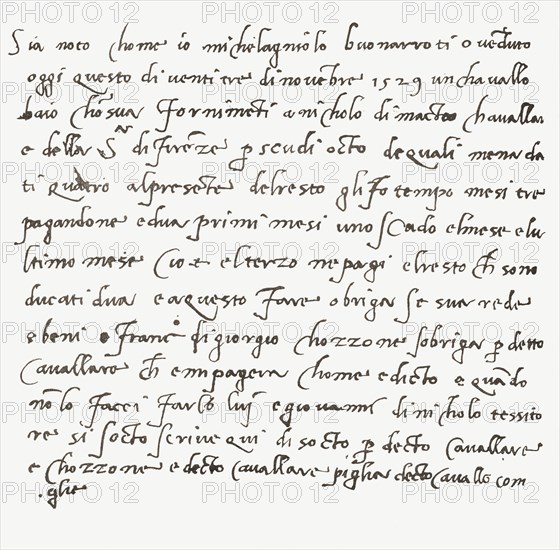 Sia noto chome io michelagniolo buonarroti o veduto
oggi questo di ventitre di novēbre 1529 un chavallo
baio chō sua fornimēti a nicholo di macteo chavallar
e della S.ar di firenze p scudi octo de quali me na da
ti quatro al presēte del resto gli fo tempo mesi tre
pagandone e dua primi mesi uno scudo el mese e lu
ltimo mese cioe el terzo ne pagi el resto ch sono
ducati dua e a questo fare obriga se sua rede
e beni e franc.o di giorgio chozzone sobriga p decto
cavallare ch e mpagera chome e dicto e quādo
nō lo facci farlo lui e giovanni di nicholo tessito
re si soctoscrive qui di socto p decto cavallare
e chozzone e decto cavallare piglia decto cavallo com
glie
PHOTO 12